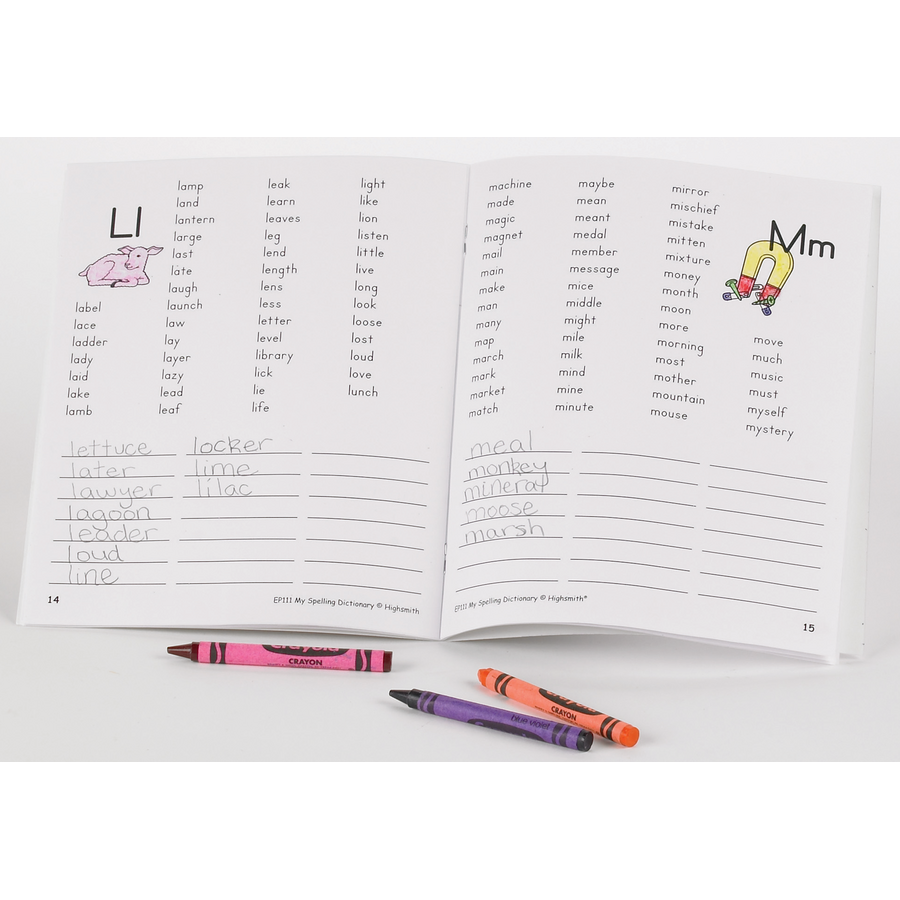 Ll
label
lace
ladder
lady
laid
lake
lamb
lamp
land
lantern
large
last
late
laugh
launch
law
lay
layer
lazy
lead
leaf
leak
learn
leaves
leg
lend
length
lens
less
letter
level
library
lick
lie
life
light
like
lion
listen
little
live
long
look
loose
lost
loud
love
lunch
lettuce
later
lawyer
lagoon
leader
loud
line
locker
lime
lilac
14
EP111 My Spelling Dictionary © Highsmith
machine
made
magic
magnet
mail
main
make
man
many
map
march
mark
market
match
maybe
mean
meant
medal
member
message
mice
middle
might
mile
milk
mind
mine
minute
mirror
mischief
mistake
mitten
mixture
money
month
moon
more
morning
most
mother
mountain
mouse
Mm
move
much
music
must
myself
mystery
meal
monkey
mineral
moose
marsh
EP111 My Spelling Dictionary © Highsmith®
15
Crayola
CRAYON
blue violet
CRAYON